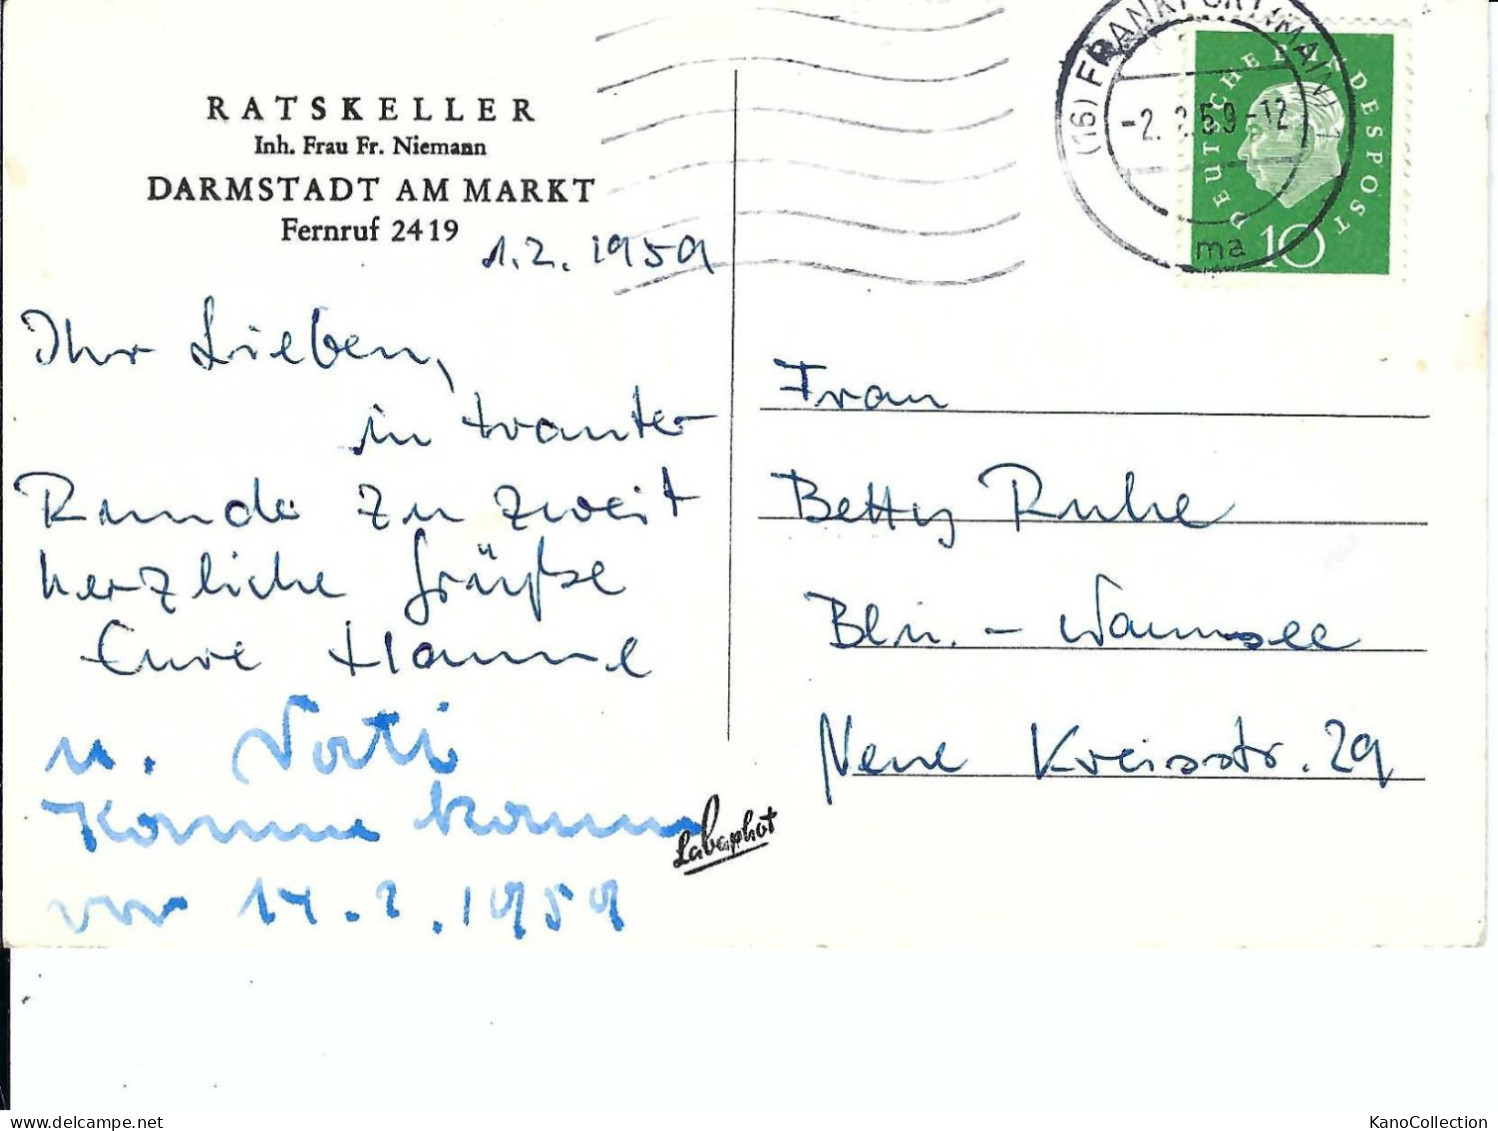 RATSKELLER
Inh. Frau Fr. Niemann
DARMSTADT AM MARKT
Fernruf 2419
1.2.1959
Ihr Lieben,
in trauter
Runde zu zweit
herzliche Grüße
Eure Hanne
u. Vati
Komme kaum
vor 14.2.1959
Labaphot
(16) FRANKFURT (MAIN) 1
-2. 2.59-12
ma
DEUTSCHE BUNDESPOST
10
Frau
Betty Ruhe
Bln. - Wannsee
Neue Kreisstr. 29
delcampe.net
KanoCollection